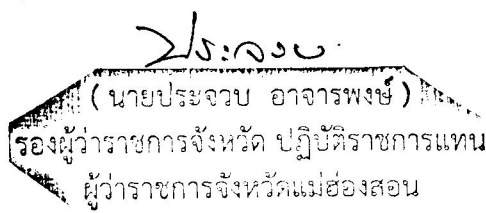 ประจวบ
(นายประจวบ อาจารพงษ์)
รองผู้ว่าราชการจังหวัด ปฏิบัติราชการแทน
ผู้ว่าราชการจังหวัดแม่ฮ่องสอน